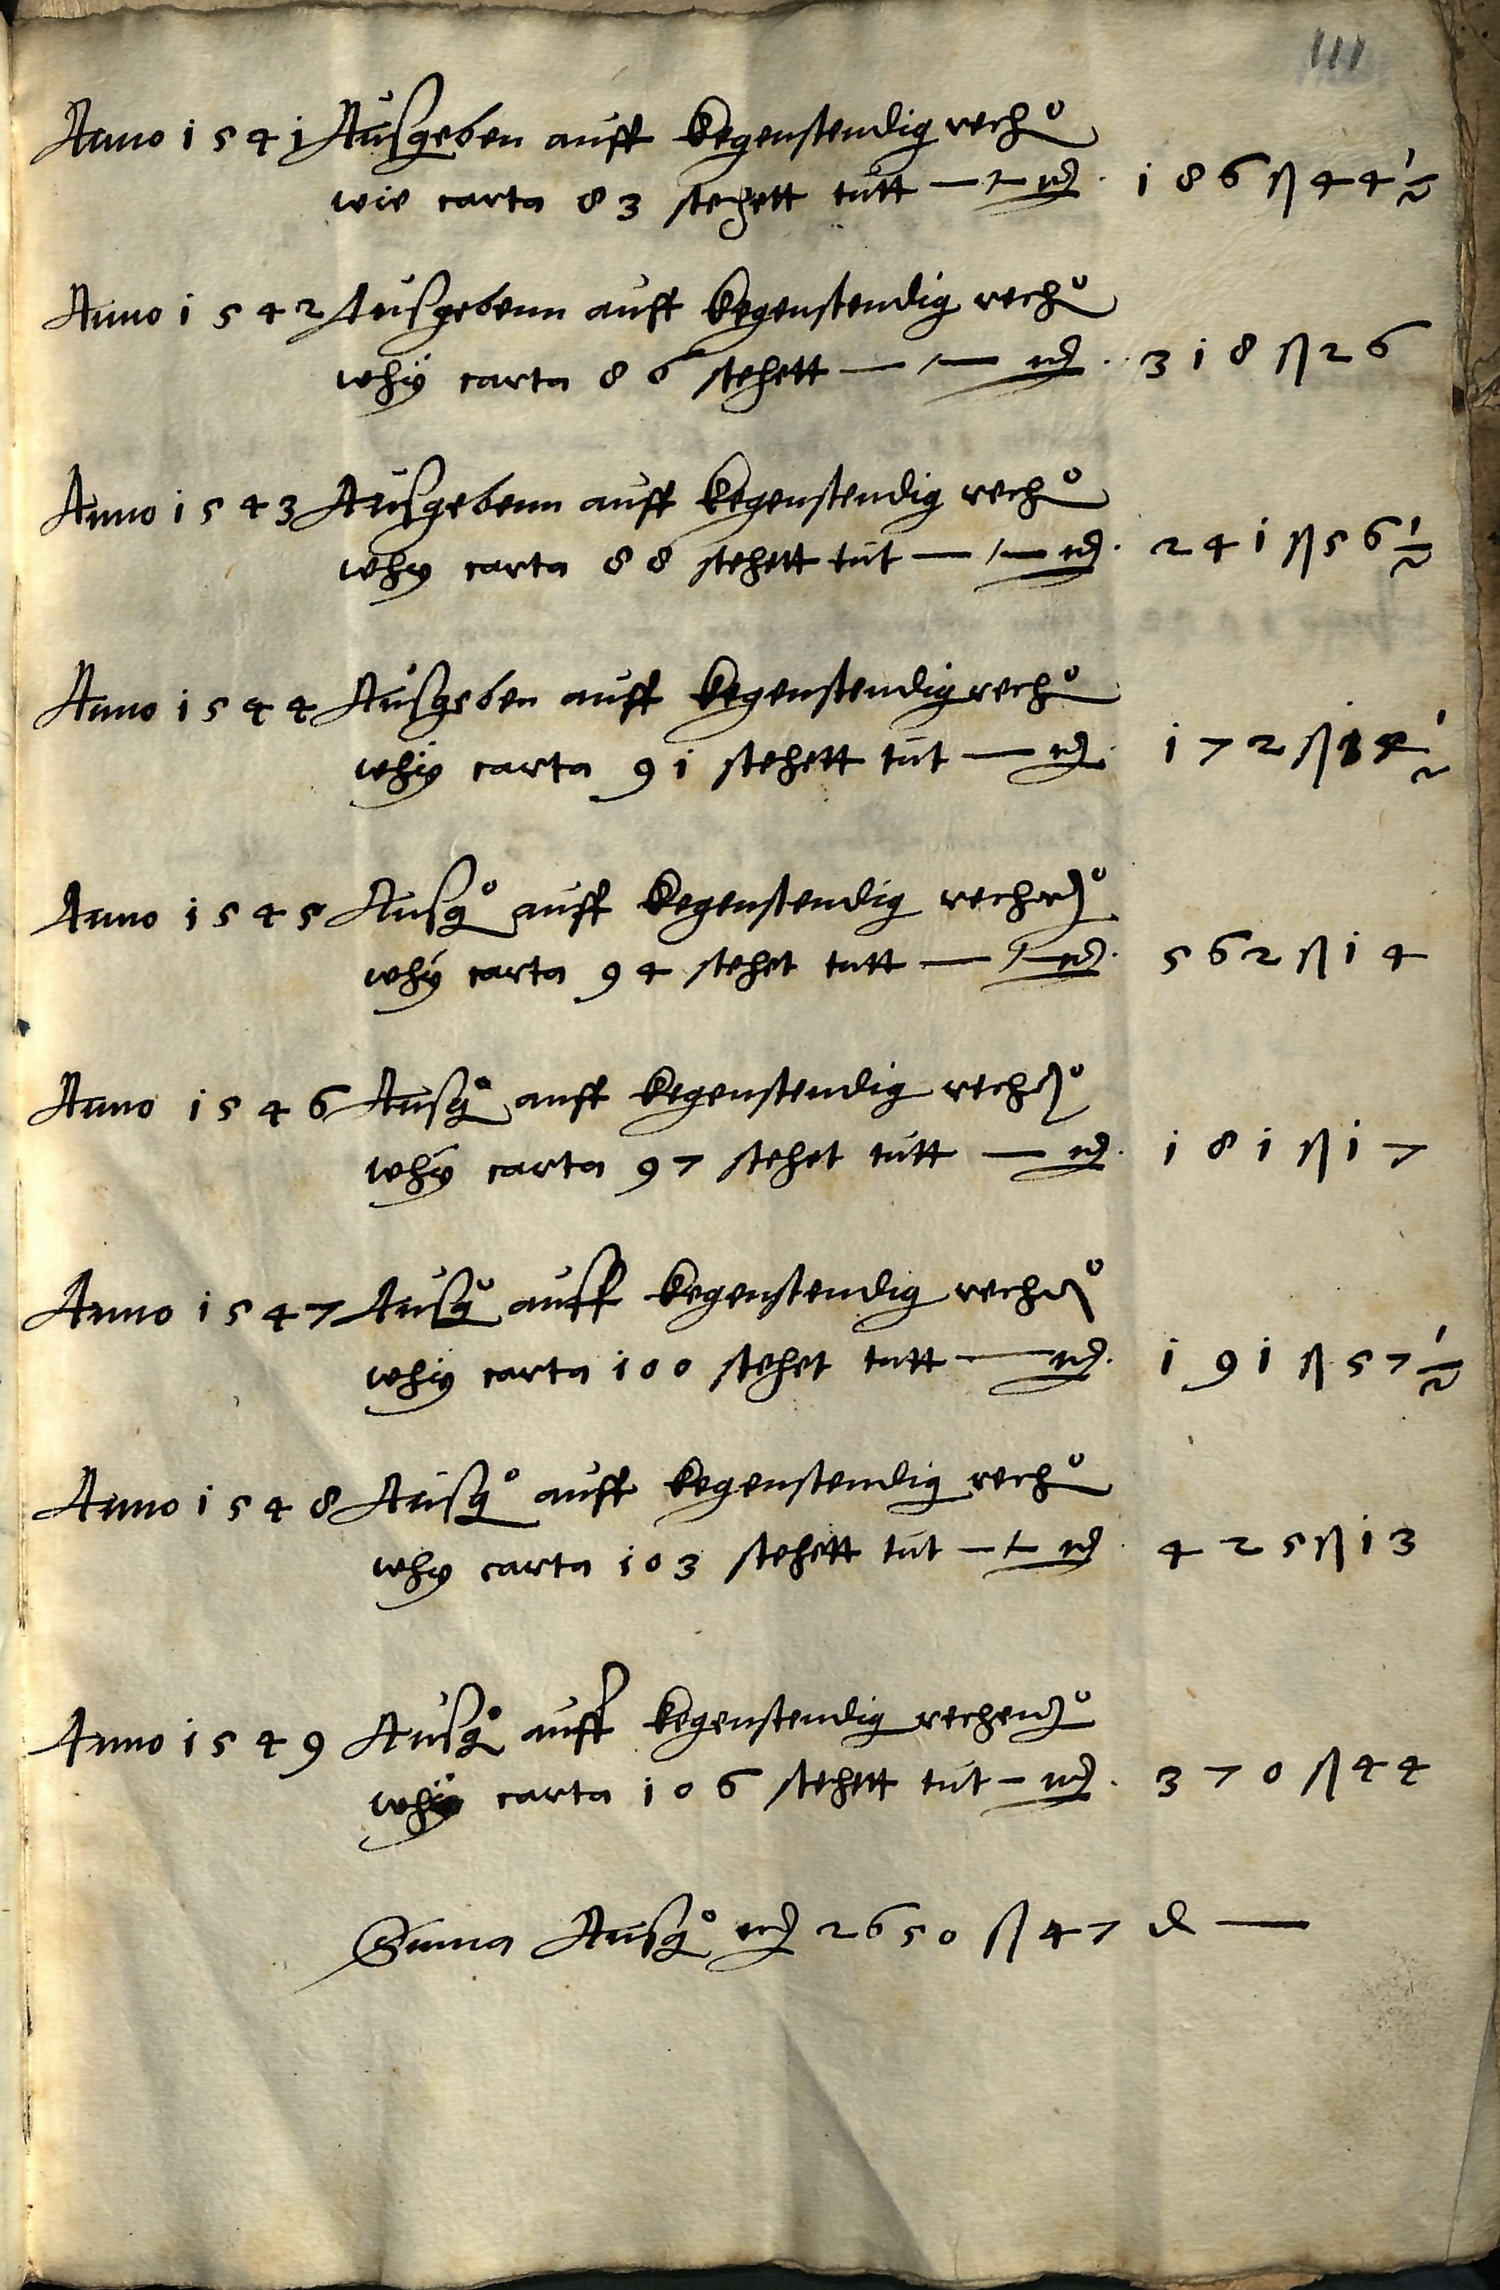 111
Anno 1541 Ausgeben auff kegenstendig rech°
wie carta 83 stehett tutt — 186 ß 44 ½
Anno 1542 Ausgebenn auff kegenstendig rech°
why carta 86 stehett — 318 ß 26
Anno 1543 Ausgebenn auff kegenstendig rech°
why carta 88 stehett tut — 241 ß 56 ½
Anno 1544 Ausgeben auff kegenstendig rech°
why carta 91 stehett tut — 172 ß 14 ½
Anno 1545 Ausg° auff kegenstendig rechn°
why carta 94 stehet tutt — 562 ß 14
Anno 1546 Ausg° auff kegenstendig rechn°
why carta 97 stehet tutt — 181 ß 17
Anno 1547 Ausg° auff kegenstendig rechn°
why carta 100 stehet tutt — 191 ß 57 ½
Anno 1548 Ausg° auff kegenstendig rech°
why carta 103 stehett tut — 425 ß 13
Anno 1549 Ausg° auff kegenstendig rechen°
why carta 106 stehett tut — 370 ß 44
Suma Ausg° 2650 ß 47 d —